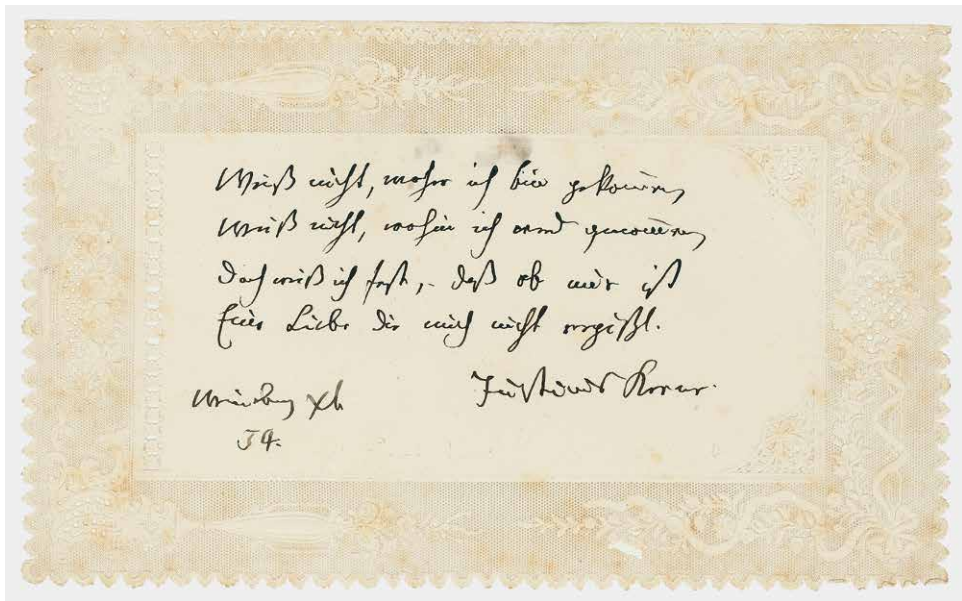 Weiß nicht, woher ich bin gekom̅en
Weiß nicht, wohin ich werd genom̅en
Doch weiß ich fest, – daß ob mir ist
Eine Liebe die mich nicht vergißt.
Justinus Kerner.
Weinsberg
54.